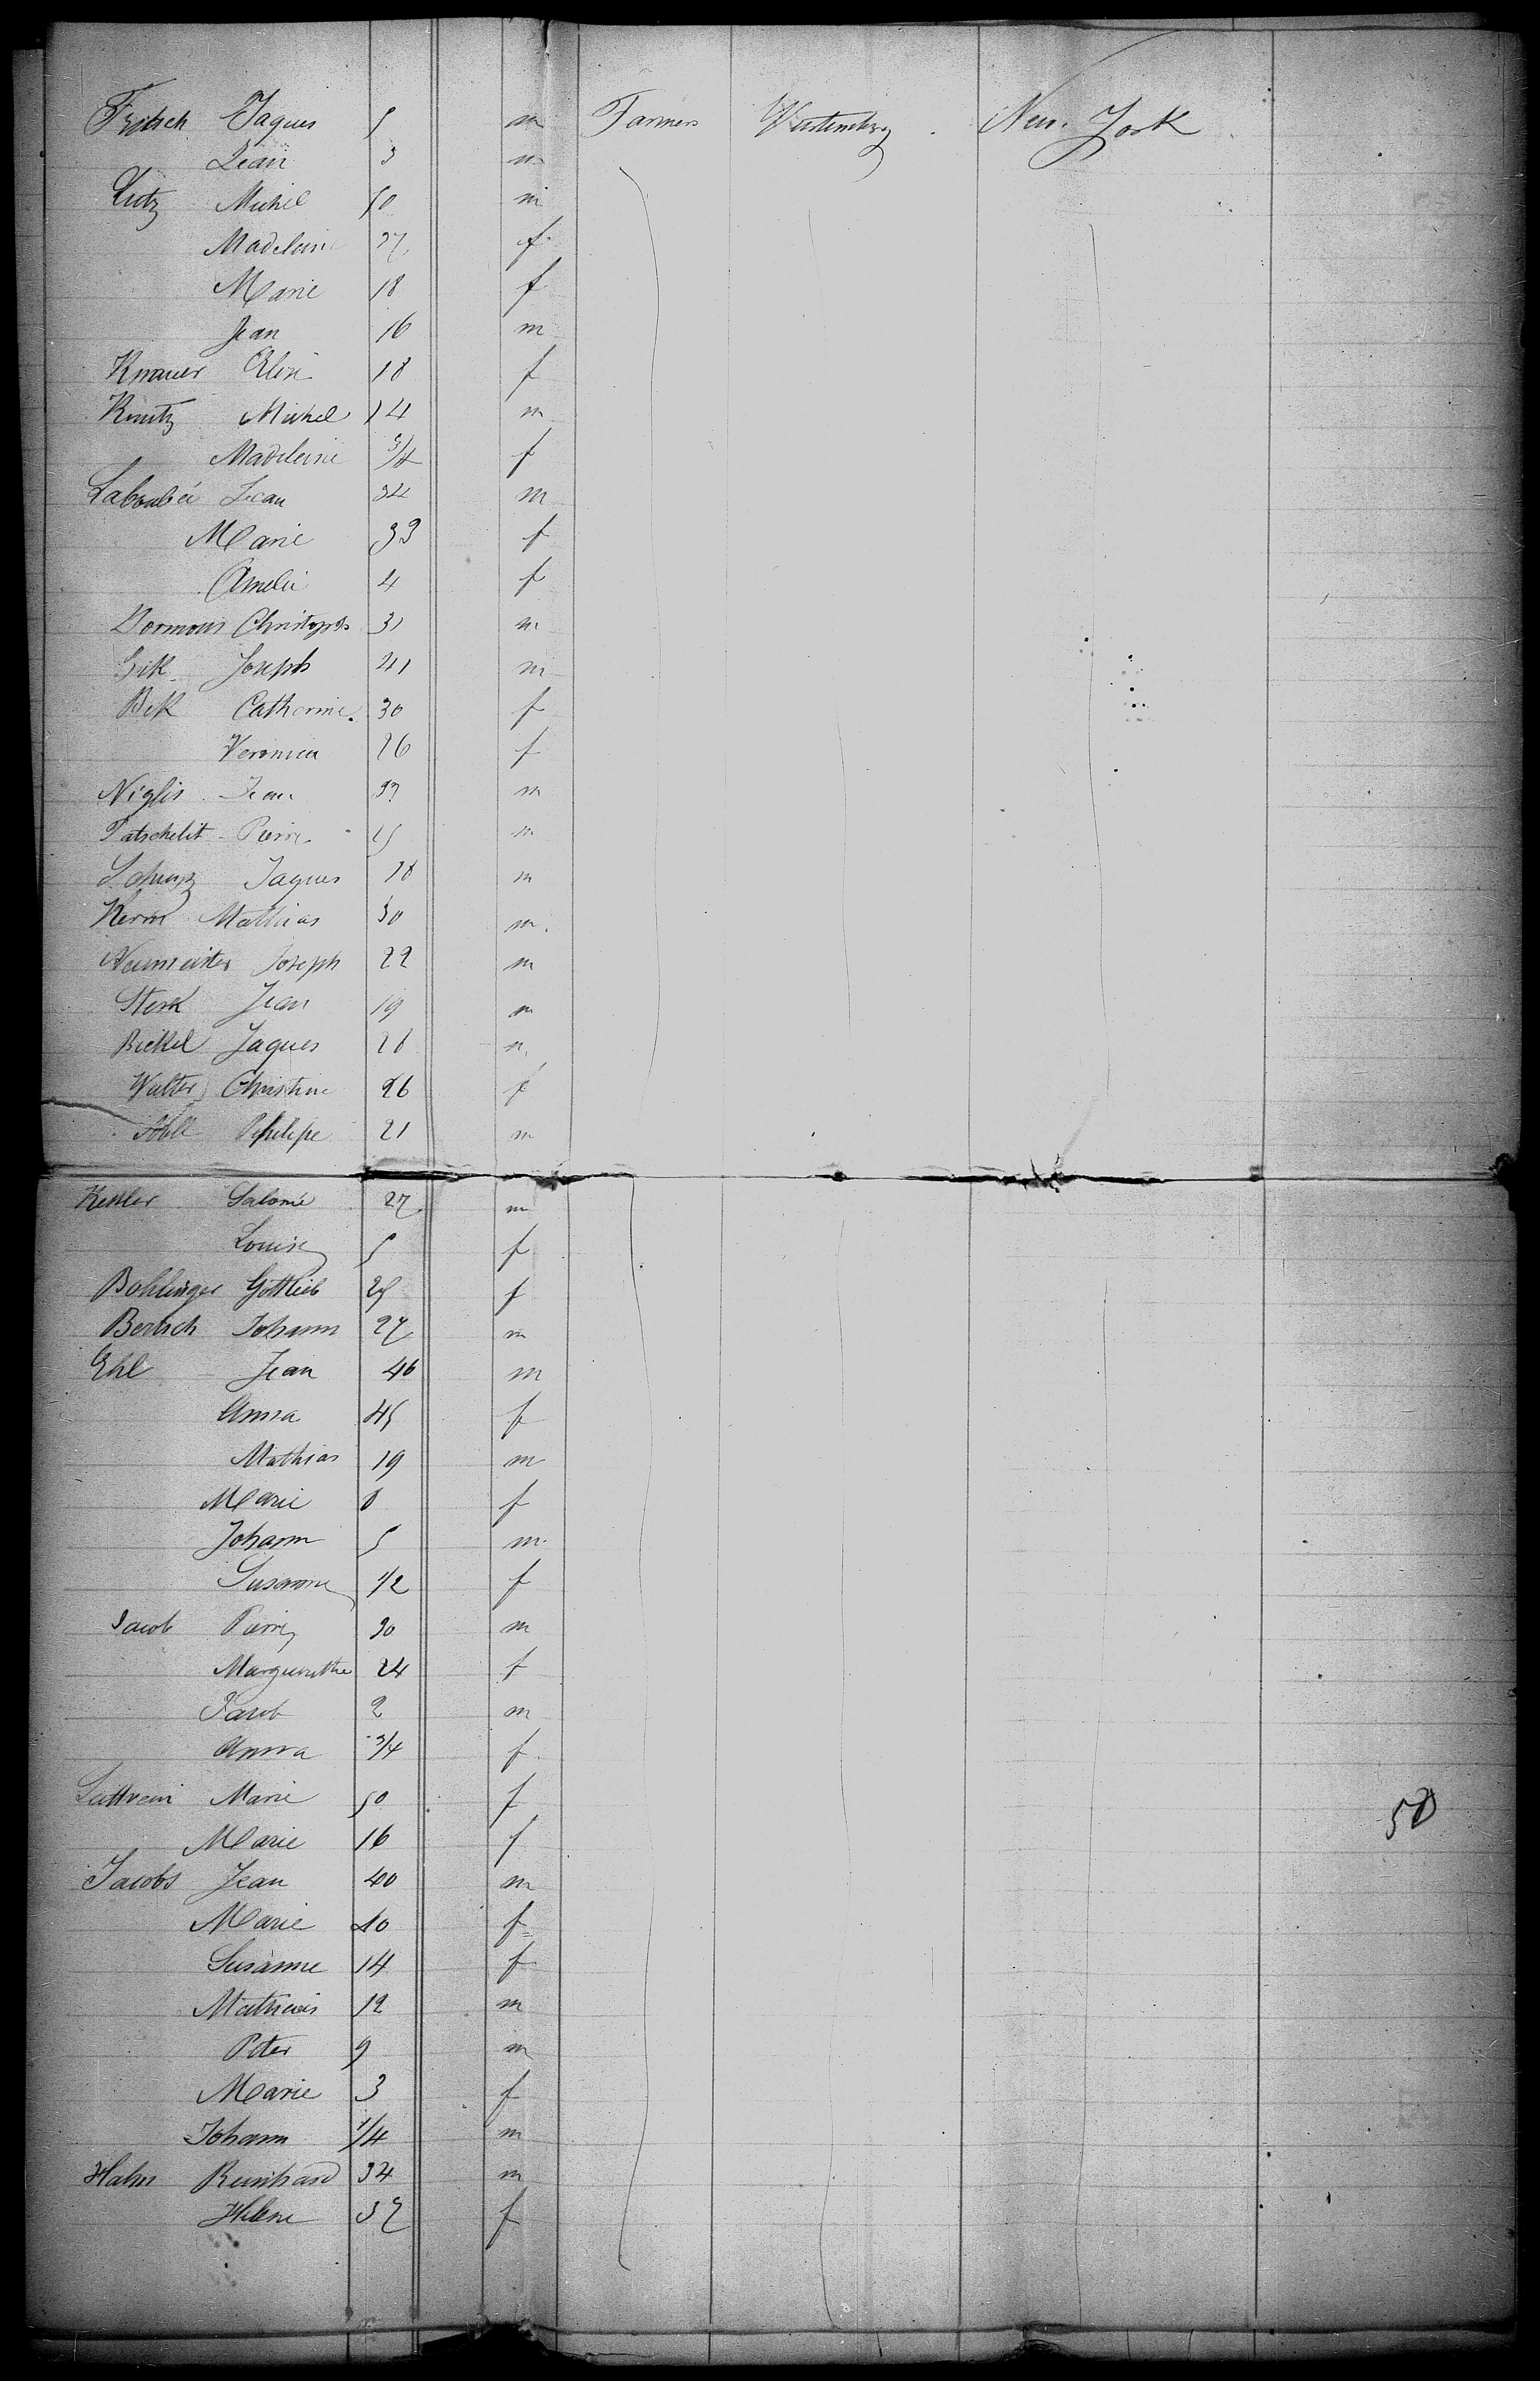 Fritsch Jaques 5 m Farmers Würtemberg New-York
Jean 3 m
Lutz Michel 50 m
Madeleine 27 f
Marie 18 f
Jean 16 m
Knauer Elise 18 f
Kuntz Michel 14 m
Madeleine 3/4 f
Jean 34 m
Marie 33 f
Amelie 4 f
Dormois Christoph 31 m
Joseph 41 m
Bek Catherine 30 f
Veronica 26 f
Niglis Jean 33 m
Patschelit Pierre 25 m
Jaques 18 m
Kern Mathias 30 m
Neumeister Joseph 22 m
Sterk Jean 19 m
Bickel Jaques 28 m
Walter Christine 26 f
Philipe 21 m
Kessler Salomé 27 m
Louise 5 f
Bohlinger Gottlieb 25 f
Bertsch Johann 27 m
Ehl Jean 46 m
Anna 45 f
Mathias 19 m
Marie 8 f
Johann 5 m
Susanne 1/2 f
Jacob Pierre 30 m
Marguerithe 24 f
Jacob 2 m
Anna 3/4 f
Marie 50 f
Marie 16 f 50
Jacobs Jean 40 m
Marie 40 f
Susanne 14 f
Mathias 12 m
Peter 9 m
Marie 3 f
Johann 1/4 m
Hahn Reinhard 34 m
Helene 37 f